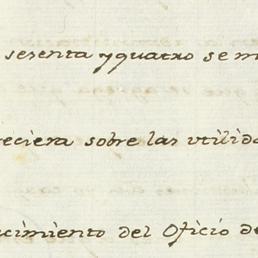 sesenta y quatro se m
reciera sobre las utilida
cimiento del Oficio de